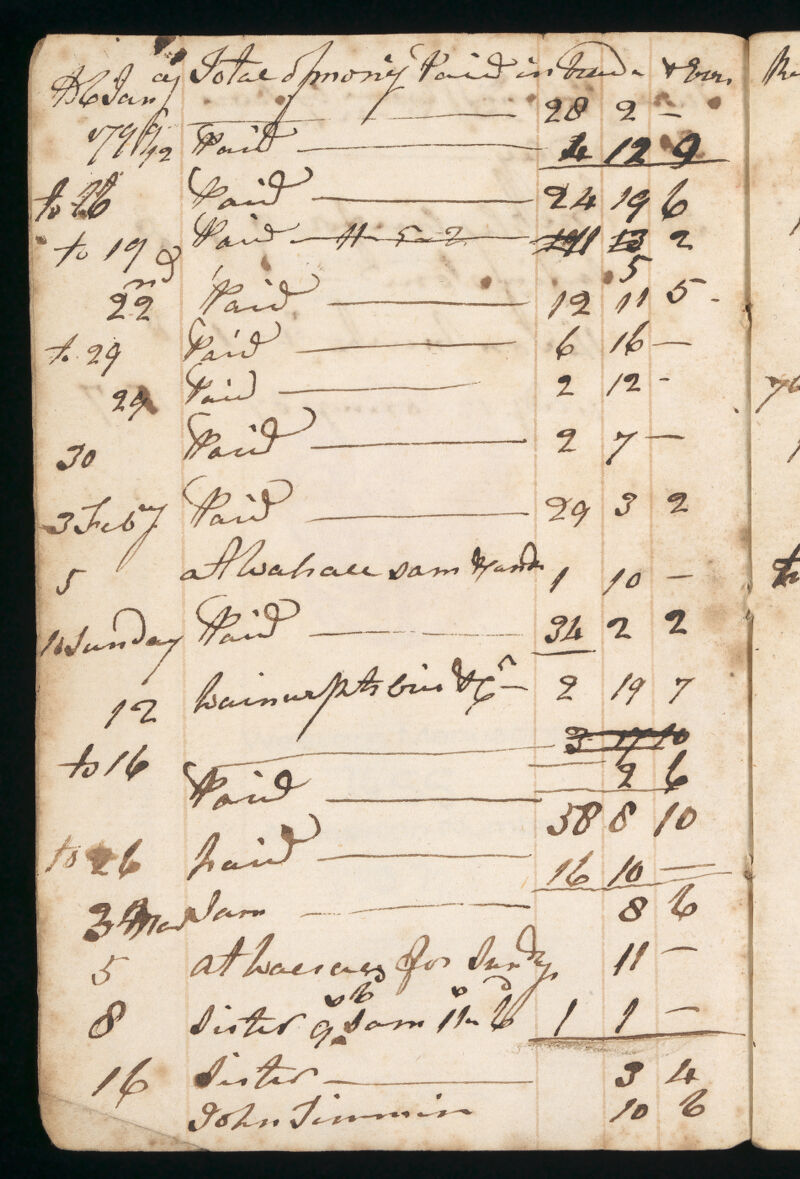 to 6 Jany Total of mony Paid in trade &
28 2 —
1799 12 Paid 4 12 9
to 16 Paid 24 19 6
to 19 Paid 11 5 2 13 2
5
22nd Paid 12 11 5
to 29 Paid 6 16 —
29 Paid 2 12 -
30 Paid 2 7 —
3 Feby Paid 29 3 2
5 at Wallace Sam 1 10 —
10 Sunday Paid 34 2 2
12 2 19 7
3 17 10
to 16 Paid 2 6
58 8 10
to 26 Paid 16 10 —
3 Mar Sam 8 6
5 at for Sundy 11 —
8 Sister 9s 6d Sam 11s 6d 1 1 —
16 Sister 3 4
John Timmin 10 6